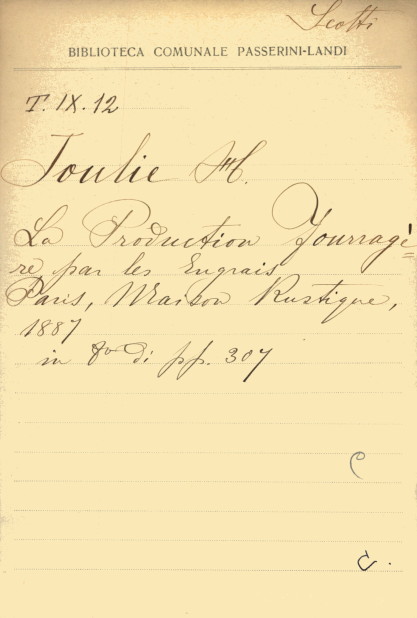 Scotti
BIBLIOTECA COMUNALE PASSERINI-LANDI
T. IX. 12
Joulie H.
La Production Fourragè=
re par les Engrais
Paris, Maison Rustique,
1887
in 8º di pp. 307
C
C.